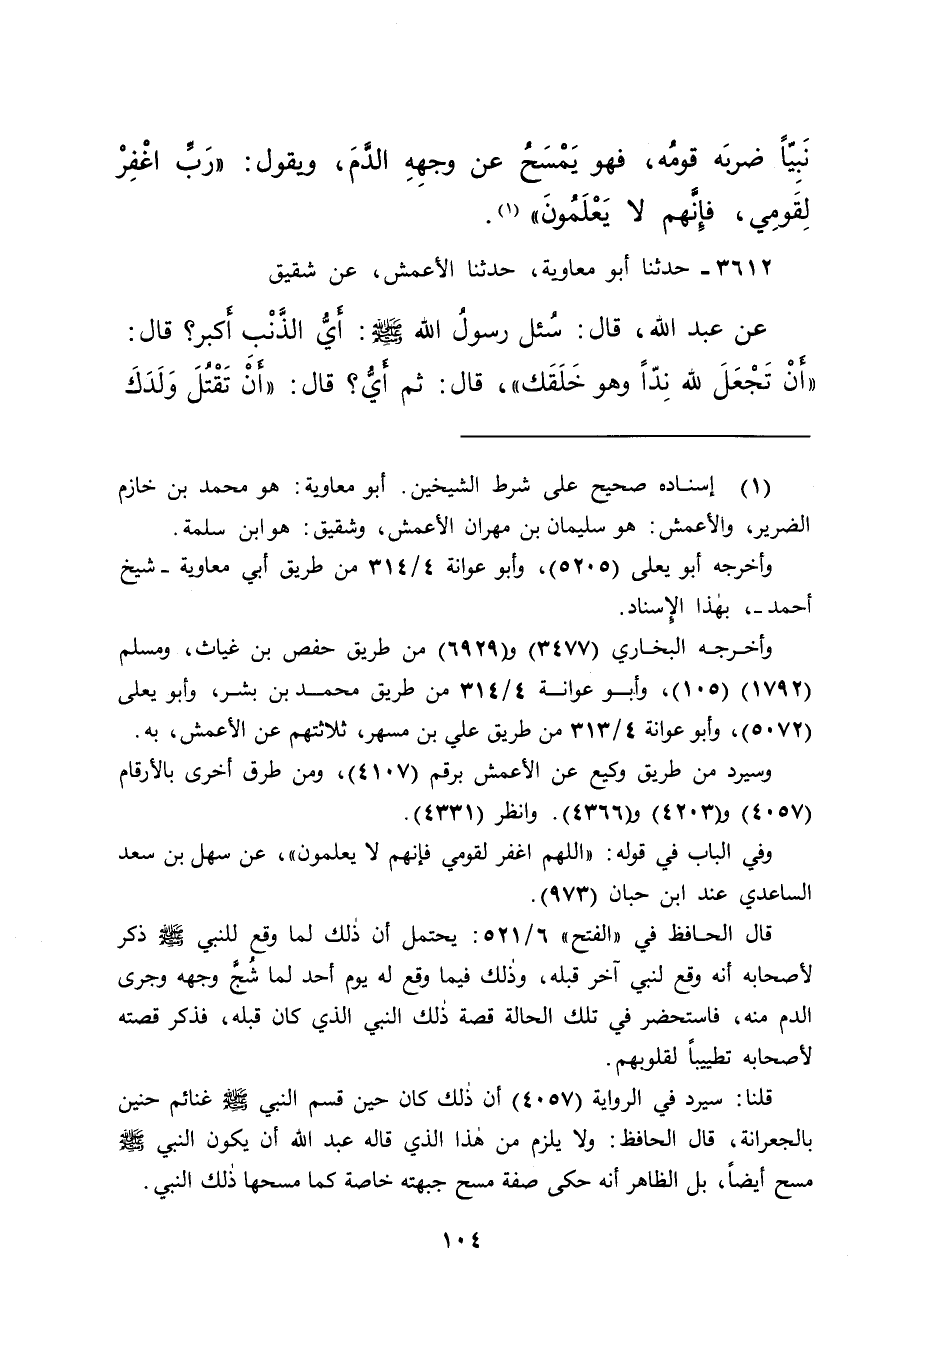 نَبِيّاً ضربَه قومُه، فهو يَمْسَحُ عن وجهِهِ الدَّمَ، ويقول: «رَبِّ اغْفِرْ
لِقَومِي، فإِنَّهم لا يَعْلَمُونَ» (١).
٣٦١٢ـ حدثنا أبو معاوية، حدثنا الأعمش، عن شقيق
عن عبد الله، قال: سُئل رسولُ الله ﷺ: أَيُّ الذَّنْبِ أَكبر؟ قال:
«أَنْ تَجْعَلَ لله نِدّاً وهو خَلَقَك»، قال: ثم أَيُّ؟ قال: «أَنْ تَقْتُلَ وَلَدَكَ
(١) إسناده صحيح على شرط الشيخين. أبو معاوية: هو محمد بن خازم
الضرير، والأعمش: هو سليمان بن مهران الأعمش، وشقيق: هو ابن سلمة.
وأخرجه أبو يعلى (٥٢٠٥)، وأبو عوانة ٣١٤/٤ من طريق أبي معاوية ـ شيخ
أحمد ـ، بهٰذا الإِسناد.
وأخرجه البخاري (٣٤٧٧) و(٦٩٢٩) من طريق حفص بن غياث، ومسلم
(١٧٩٢) (١٠٥)، وأبو عوانة ٣١٤/٤ من طريق محمد بن بشر، وأبو يعلى
(٥٠٧٢)، وأبو عوانة ٣١٣/٤ من طريق علي بن مسهر، ثلاثتهم عن الأعمش، به.
وسيرد من طريق وكيع عن الأعمش برقم (٤١٠٧)، ومن طرق أخرى بالأرقام
(٤٠٥٧) و(٤٢٠٣) و(٤٣٦٦). وانظر (٤٣٣١).
وفي الباب في قوله: «اللهم اغفر لقومي فإنهم لا يعلمون»، عن سهل بن سعد
الساعدي عند ابن حبان (٩٧٣).
قال الحافظ في «الفتح» ٥٢١/٦: يحتمل أن ذٰلك لما وقع للنبي ﷺ ذكر
لأصحابه أنه وقع لنبي آخر قبله، وذٰلك فيما وقع له يوم أحد لما شُجَّ وجهه وجرى
الدم منه، فاستحضر في تلك الحالة قصة ذٰلك النبي الذي كان قبله، فذكر قصته
لأصحابه تطييباً لقلوبهم.
قلنا: سيرد في الرواية (٤٠٥٧) أن ذٰلك كان حين قسم النبي ﷺ غنائم حنين
بالجعرانة، قال الحافظ: ولا يلزم من هٰذا الذي قاله عبد الله أن يكون النبي ﷺ
مسح أيضاً، بل الظاهر أنه حكى صفة مسح جبهته خاصة كما مسحها ذٰلك النبي.
١٠٤